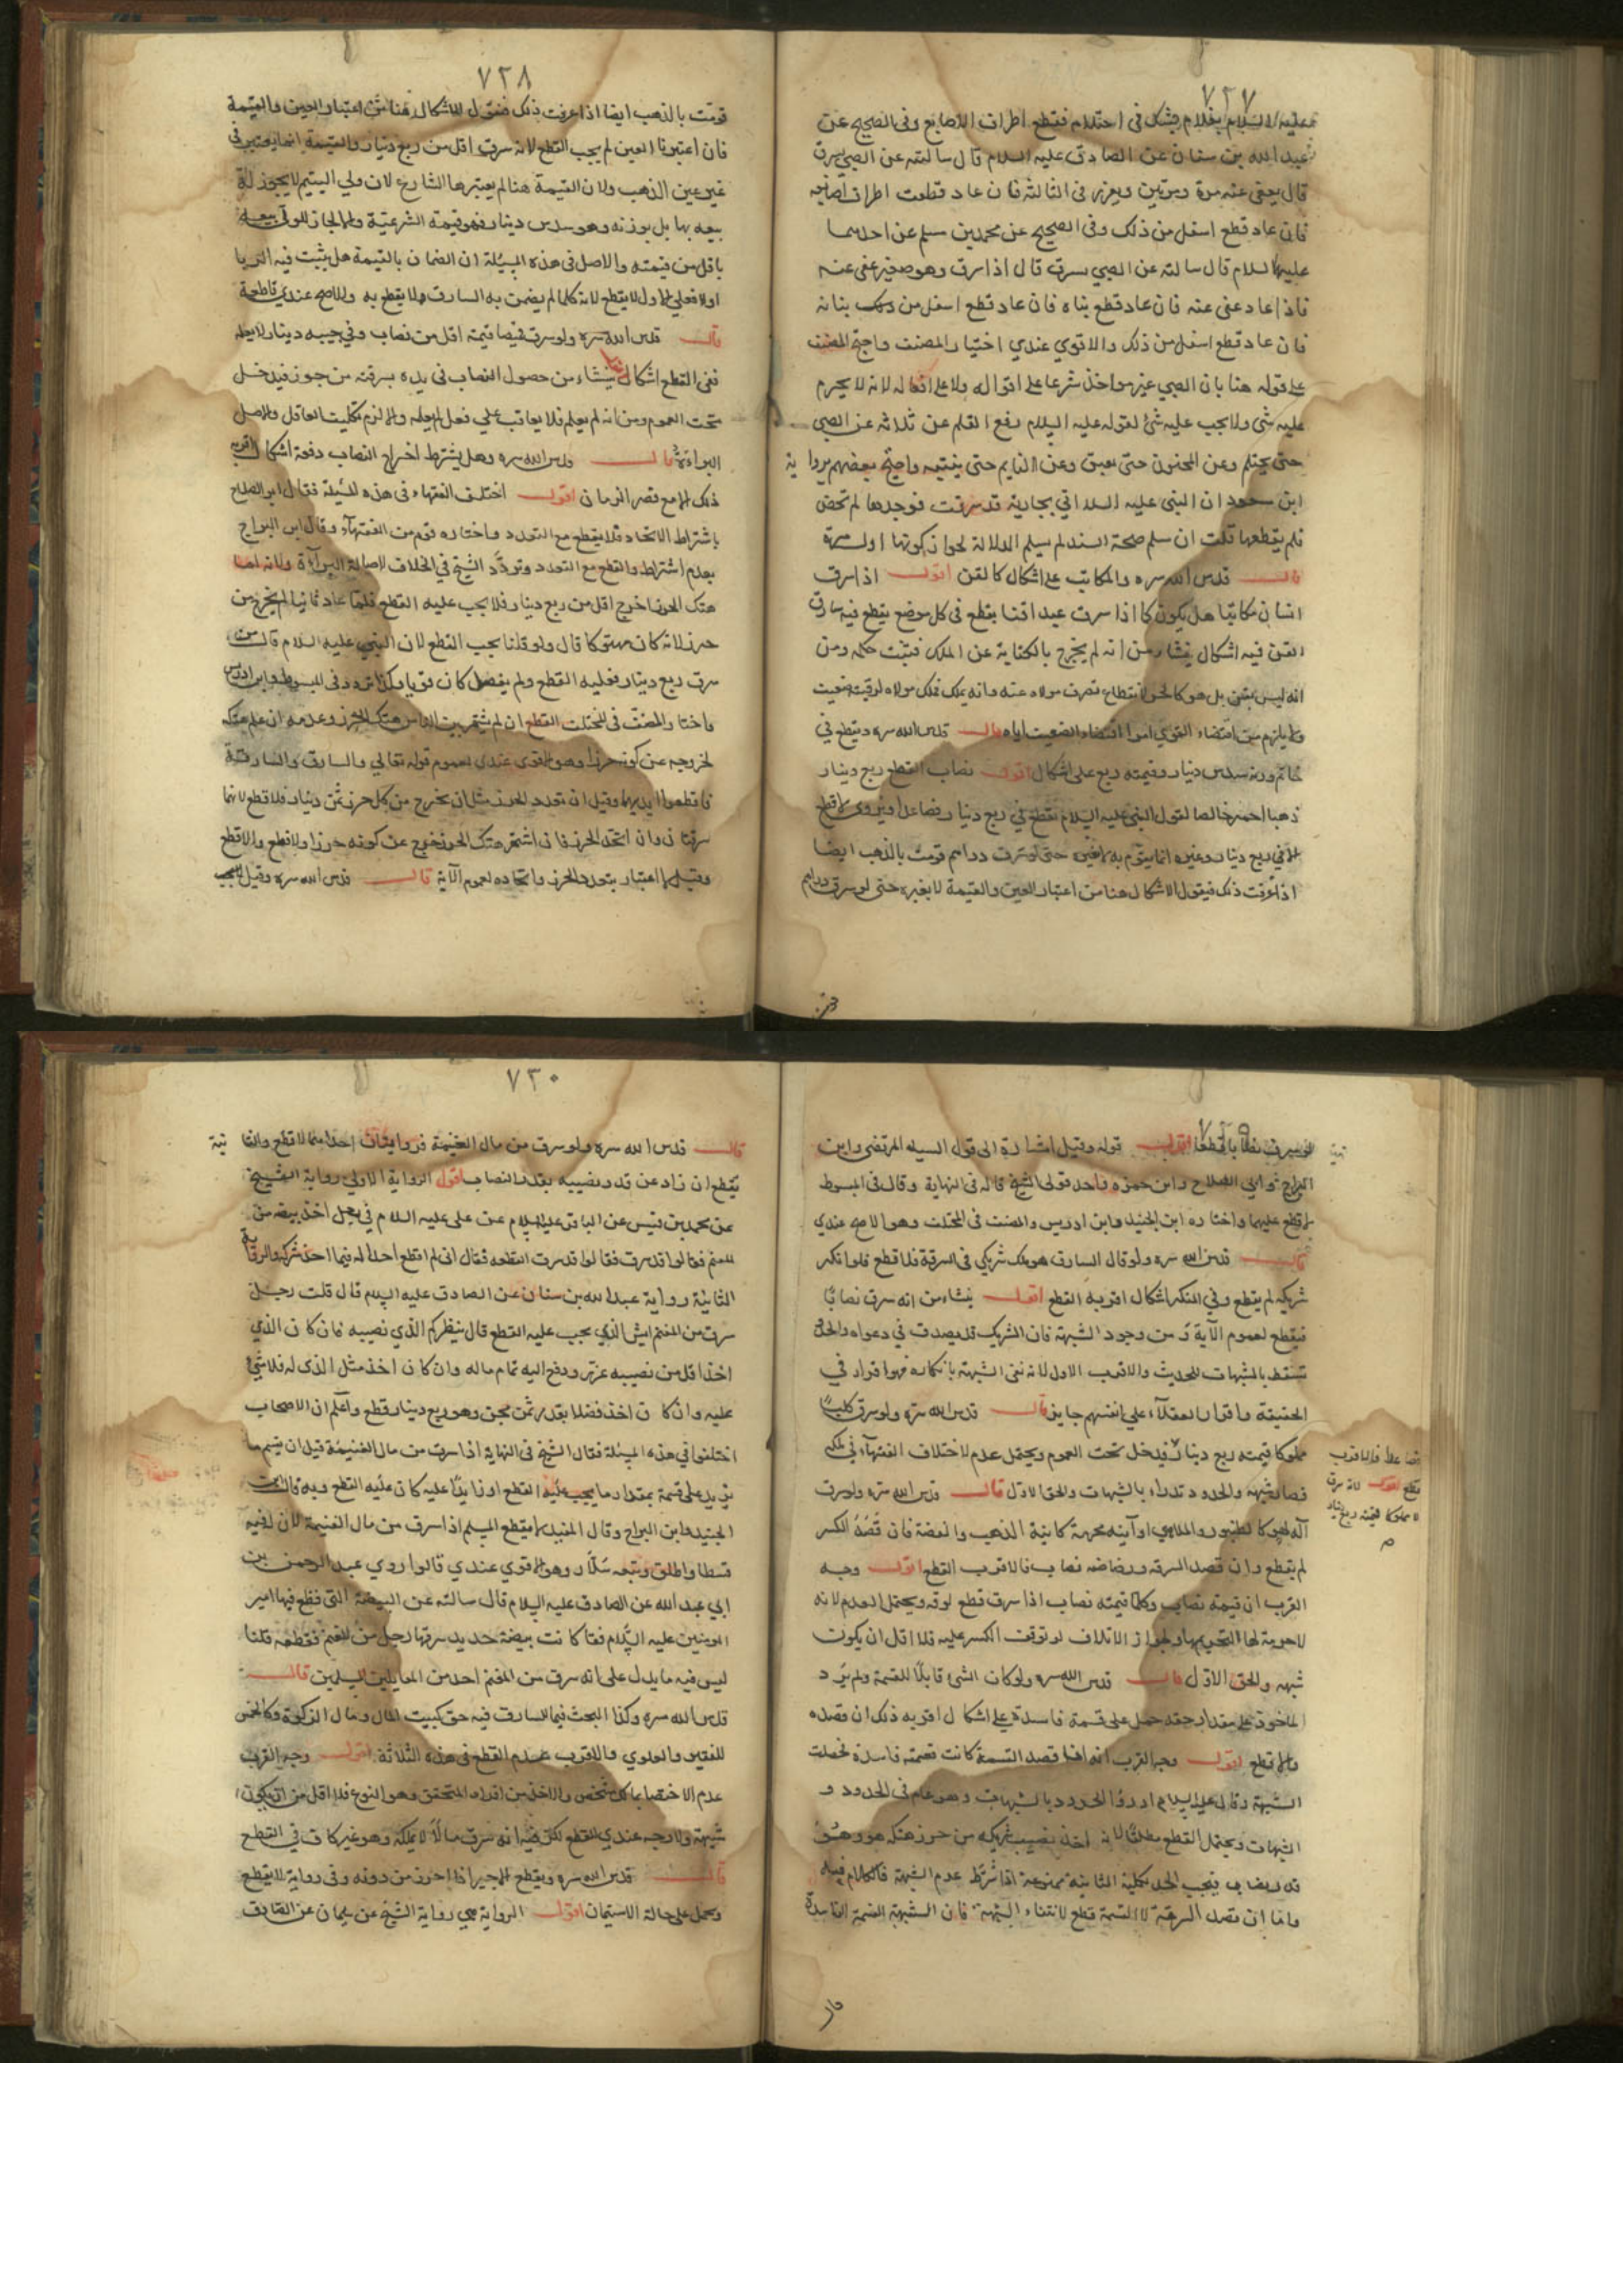 ٧٢٧
عليه السلام بغلام يشك في احتلام فقطع اطراف الاصابع وفي الصحيح عن
عبد الله بن سنان عن الصادق عليه السلام قال سالته عن الصبي يسرق
قال يعفى عنه مرة ومرتين ويعزر في الثالثة فان عاد قطعت اطراف اصابعه
فان عاد قطع اسفل من ذلك وفي الصحيح عن محمد بن مسلم عن احدهما
عليهما السلام قال سالته عن الصبي يسرق قال اذا سرق وهو صغير عفى عنه
فاذا عاد عفى عنه فان عاد قطع بنانه فان عاد قطع اسفل من بنانه
فان عاد قطع اسفل من ذلك والاقوي عندي اختيار المصنف واحتج المصنف
على قوله هنا بان الصبي غير مواخذ شرعا على اقواله ولا على افعاله لانه لا يحرم
عليه شى ولا يجب عليه شئ لقوله عليه السلام رفع القلم عن ثلاثة عن الصبي
حتى يحتلم وعن المجنون حتى يفيق وعن النايم حتى ينتبه واحتج بعضهم بروا ية
ابن مسعود ان النبي عليه السلام اتي بجارية قد سرقت فوجدها لم تحض
فلم يقطعها قلت ان سلم صحة السند لم يسلم الدلالة لجواز كونها اول مرة
قال قدس الله سره والمكاتب على اشكال كالقن اقول اذا سرق
انسان مكاتبا هل يكون كما اذا سرق عبدا قنا يقطع في كل موضع يقطع فيه سارق
القن فيه اشكال ينشا من انه لم يخرج بالكتابة عن الملك فيثبت حكمه ومن
انه ليس بقن بل هو كالحر لانقطاع تصرف مولاه عنه وانه يملك فملك مولاه لرقبته ضعيف
ولا يلزم من اقتضاء القوي امرا اقتضاء الضعيف اياه قال قدس الله سره ويقطع في
خاتم وزنه سدس دينار وقيمته ربع على اشكال اقول نصاب القطع ربع دينار
ذهبا احمر خالصا لقول النبي عليه السلام يقطع في ربع دينار فصاعدا وروي لا قطع
الا في ربع دينار وغيره انما يقوم به لا بغيره حتى لو سرق دراهم قومت بالذهب ايضا
اذا عرفت ذلك فنقول الاشكال هنا من اعتبار العين والقيمة لا بغيره حتى لو سرق دراهم
٧٢٨
قومت بالذهب ايضا اذا عرفت ذلك فنقول الاشكال هنا من اعتبار العين والقيمة
فان اعتبرنا العين لم يجب القطع لانه سرق اقل من ربع دينار والقيمة انما يعتبر في
غير عين الذهب ولان القيمة هنا لم يعتبرها الشارع لان ولي اليتيم لا يجوز له
بيعه بها بل بوزنه وهو سدس دينار فهو قيمته الشرعية والا لجاز للولي بيعه
باقل من قيمته والاصل في هذه المسئلة ان الضمان بالقيمة هل يثبت فيه الربا
او لا فعلى الاول لا يقطع لانه كلما لم يضمن به السارق لا يقطع به والاصح عندي قاطعة
قال قدس الله سره ولو سرق قميصا قيمته اقل من نصاب وفي جيبه دينار لا يعلمه
ففي القطع اشكال ينشاء من حصول النصاب في يده بسرقته من حرز فيدخل
تحت العموم ومن انه لم يعلم فلا يعاقب علي فعل لم يعلمه والا لزم تكليف الغافل والاصل
البراءة قال قدس الله سره وهل يشترط اخراج النصاب دفعة اشكال اقربه
ذلك الا مع قصر الزمان اقول اختلف الفقهاء في هذه المسئلة فقال ابو الصلاح
باشتراط الاتحاد فلا يقطع مع التعدد واختاره قوم من الفقهاء وقال ابن البراج
بعدم اشتراط والقطع مع التعدد وتردد الشيخ في الخلاف لاصالة البراءة ولانه لما
هتك الحرز اخرج اقل من ربع دينار فلا يجب عليه القطع فلما عاد ثانيا لم يخرج من
حرز لانه كان مهتوكا قال ولو قلنا يجب القطع لان النبي عليه السلام قال من
سرق ربع دينار فعليه القطع ولم يفصل كان قويا وكذا تردد في المبسوط وابن ادريس
واختار المصنف في المختلف القطع ان لم يشتهر بين الناس هتك الحرز وعدمه ان علم هتكه
لخروجه عن كونه حرزا وهو الاقوى عندي لعموم قوله تعالي والسارق والسارقة
فاقطعوا ايديهما وقيل ان تعدد الحرز مثل ان يخرج من كل حرز ثمن دينار فلا قطع لانهما
سرقتان وان اتحد الحرز فان اشتهر هتك الحرز خرج عن كونه حرزا ولا قطع والا قطع
وقيل لا اعتبار بتعدد الحرز واتحاده لعموم الآية قال قدس الله سره وقيل يجب
اقول قوله وقيل اشارة الى قول السيد المرتضى وابن
البراج وابي الصلاح وابن حمزه واحد قولي الشيخ قاله في النهاية وقال في المبسوط
لا قطع عليهما واختاره ابن الجنيد وابن ادريس والمصنف في المختلف وهو الاصح عندي
قال قدس الله سره ولو قال السارق هو ملك شريكي في السرقة فلا قطع فلو انكر
شريكه لم يقطع وفي المنكر اشكال اقربه القطع اقول ينشاء من انه سرق نصابا
فيقطع لعموم الآية و من وجود الشبهة فان الشريك قد يصدق في دعواه والحدود
تسقط بالشبهات للحديث والاقرب الاول لانه نفى الشبهة بانكاره فهو اقرار في
الحقيقة واقرار العقلاء على انفسهم جايز قال قدس الله سره ولو سرق كلبا
مملوكا قيمته ربع دينار فيدخل تحت العموم ويحتمل عدم لاختلاف الفقهاء في ملكه
فصار شبهة والحدود تدراء بالشبهات والحق الاول قال قدس الله سره ولو سرق
آلة لهو كالطنبور والملاهي او آنية محرمة كانية الذهب والفضة فان قصد الكسر
لم يقطع وان قصد السرقة ورضاضه نصاب فالاقرب القطع اقول وجه
القرب ان قيمته نصاب وكلما قيمته نصاب اذا سرق قطع لوقه ويحتمل العدم لانه
لا حرمة لها التحريمها ولجواز الاتلاف لو توقف الكسر عليه فلا اقل ان يكون
شبهه والحق الاول قال قدس الله سره ولو كان الشئ قابلا للقسمة ولم يزد
الماخوذ على مقدار حقه حمل على قسمة فاسدة على اشكال اقربه ذلك ان قصده
والا قطع اقول وجه القرب انه اذا قصد القسمة كانت قسمته فاسدة فحصلت
الشبهة وقال عليه السلام ادرؤا الحدود بالشبهات وهو عام في الحدود و
الشبهات ويحتمل القطع مطلقا لانه اخذ نصيب شريكه من حرز هتكه هو وهو
قدر نصاب فيجب الحد بكلية الثانية ممنوعة اذا شرط عدم الشبهة فالكلام فيه
واما ان قصد السرقة لا القسمة قطع لانتفاء الشبهة فان الشبهة القسمة الفاسدة
فصاعدا فالاقرب
القطع اقول لانه سرق
مملوكا قيمته ربع دينار
٧٣٠
قال قدس الله سره ولو سرق من مال الغنيمة فروايتان احداهما لا قطع والثا نية
يقطع ان زاد عن قدر نصيبه بقدر النصاب اقول الرواية الاولي رواية الشيخ
عن محمد بن قيس عن الباقر عليه السلام عن على عليه السلام في رجل اخذ بيضة من
المغنم فقالوا قد سرق اقطعه فقال اني لم اقطع احدا له فيما اخذ شرك والرواية
الثانية رواية عبد الله بن سنان عن الصادق عليه السلام قال قلت رجل
سرق من المغنم ايش الذي يجب عليه القطع قال ينظر كم الذي نصيبه فان كان الذي
اخذ اقل من نصيبه عزر ودفع اليه تمام ماله وان كان اخذ مثل الذى له فلا شئ
عليه وان كان اخذ فضلا بقدر ثمن مجن وهو ربع دينار قطع واعلم ان الاصحاب
اختلفوا في هذه المسئلة فقال الشيخ في النهاية اذا سرق من مال الغنيمة قبل ان يقسم ما
يزيد على قسمة بمقدار ما يجب عليه القطع او زايدا عليه كان عليه القطع وبه قال ابن
الجنيد وابن البراج وقال المفيد لا يقطع المسلم اذا سرق من مال الغنيمة لان له فيه
قسطا واطلق وتبعه سلار وهو الاقوي عندي قالوا روي عبد الرحمن بن
ابي عبد الله عن الصادق عليه السلام قال سالته عن البيضة التي قطع فيها امير
المومنين عليه السلام فقال كانت بيضة حديد سرقها رجل من المغنم فقطعه قلنا
ليس فيه ما يدل على انه سرق من المغنم احد من المقاتلين المسلمين قال
قدس الله سره وكذا البحث فيما للسارق فيه حق كبيت المال ومال الزكوة وكالخمس
للفقير والعلوي والاقرب عدم القطع في هذه الثلاثة اقول وجه القرب
عدم الاختصاص بمالك شخص والاخذ من افراد المستحق وهو النوع فلا اقل من ان يكون
شبهة ولا وجه عندي للقطع لكونه انه سرق مالا لا يملكه وهو غير كاف في القطع
قال قدس الله سره ويقطع الاجير اذا احرز من دونه وفي رواية لا يقطع
وتحمل على حالة الاستيمان اقول الرواية هي رواية الشيخ عن سليمان عن الصادق